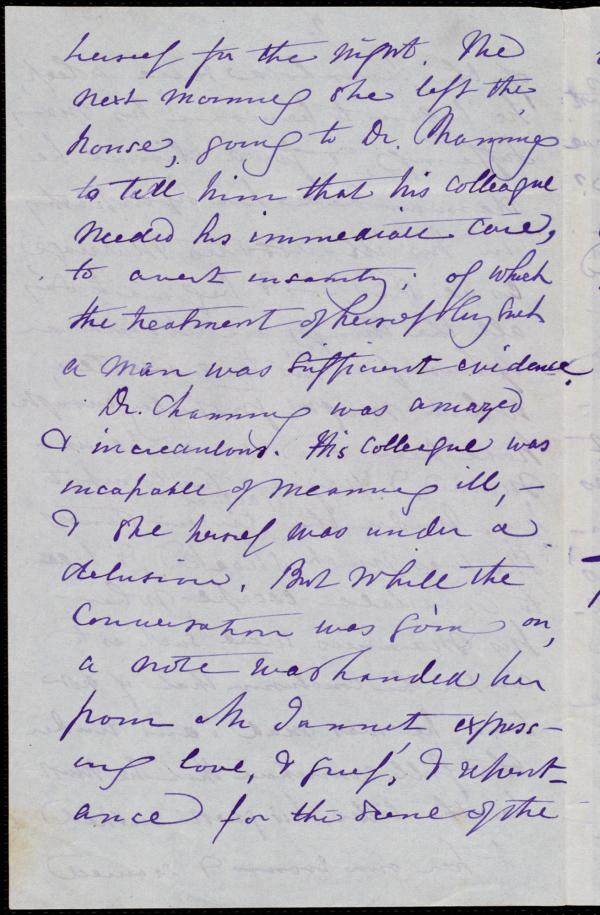 herself for the night. The
next morning she left the
house, going to Dr. Channing
to tell him that his colleague
needed his immediate care,
to avert insanity; of which
the treatment of herself by such
a man was sufficient evidence.
Dr. Channing was amazed
& incredulous. His colleague was
incapable of meaning ill, –
& she herself was under a
delusion. But while the
conversation was going on,
a note was handed her
from Mr Gannett, express-
ing love, & grief, & repent-
ance for the scene of the